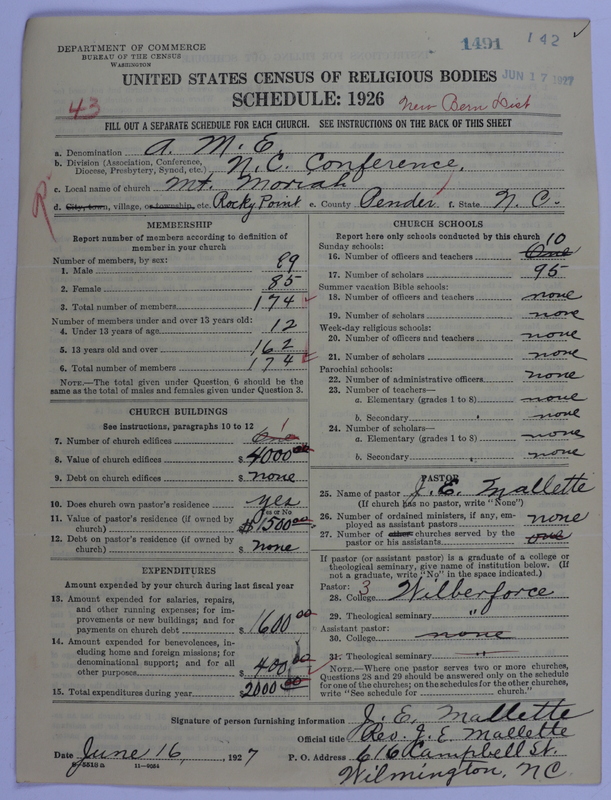 DEPARTMENT OF COMMERCE
BUREAU OF THE CENSUS
WASHINGTON
1491 142
JUN 17 1927
UNITED STATES CENSUS OF RELIGIOUS BODIES
SCHEDULE: 1926
43
New Bern Dist
FILL OUT A SEPARATE SCHEDULE FOR EACH CHURCH. SEE INSTRUCTIONS ON THE BACK OF THIS SHEET
a. Denomination A. M. E.
b. Division (Association, Conference, Diocese, Presbytery, Synod, etc.) N.C. Conference.
c. Local name of church Mt. Moriah
d. City, town, village, or township, etc. Rocky Point e. County Pender f. State N. C.
MEMBERSHIP
Report number of members according to definition of
member in your church
Number of members, by sex:
1. Male 89
2. Female 85
3. Total number of members 174
Number of members under and over 13 years old:
4. Under 13 years of age 12
5. 13 years old and over 162
6. Total number of members 174
NOTE.—The total given under Question 6 should be
same as the total of males and females given under Question 3.
CHURCH BUILDINGS
See instructions, paragraphs 10 to 12
7. Number of church edifices one 1
8. Value of church edifices $ 4000.00
9. Debt on church edifices $ none
10. Does church own pastor's residence? yes
Yes or No
11. Value of pastor's residence (if owned by
church) $1,500.00
12. Debt on pastor's residence (if owned by
church) $ none
EXPENDITURES
Amount expended by your church during last fiscal year
13. Amount expended for salaries, repairs,
and other running expenses; for im-
provements or new buildings; and for
payments on church debt $ 1600.00
14. Amount expended for benevolences, in-
cluding home and foreign missions; for
denominational support; and for all
other purposes $ 400.00
15. Total expenditures during year $ 2000.00
CHURCH SCHOOLS
Report here only schools conducted by this church
Sunday schools: 10
16. Number of officers and teachers One
17. Number of scholars 95
Summer vacation Bible schools:
18. Number of officers and teachers none
19. Number of scholars none
Week-day religious schools:
20. Number of officers and teachers none
21. Number of scholars none
Parochial schools:
22. Number of administrative officers none
23. Number of teachers—
a. Elementary (grades 1 to 8) none
b. Secondary none
24. Number of scholars—
a. Elementary (grades 1 to 8) none
b. Secondary none
PASTOR
25. Name of pastor J. E. Mallette
(If church has no pastor, write "None")
26. Number of ordained ministers, if any, em-
ployed as assistant pastors none
27. Number of other churches served by the
pastor or his assistants one
If pastor (or assistant pastor) is a graduate of a college or
theological seminary, give name of institution below. (If
not a graduate, write "No" in the space indicated.)
Pastor: 3
28. College Wilberforce
29. Theological seminary "
Assistant pastor:
30. College none
31. Theological seminary "
NOTE.—Where one pastor serves two or more churches,
Questions 28 and 29 should be answered only on the schedule
for one of the churches; on the schedules for the other churches,
write "See schedule for church."
Signature of person furnishing information J. E. Mallette
Official title Rev. J. E. Mallette
Date June 16, 1927 P. O. Address 616 Campbell St.
8-5518a 11-9084
Wilmington, N.C.